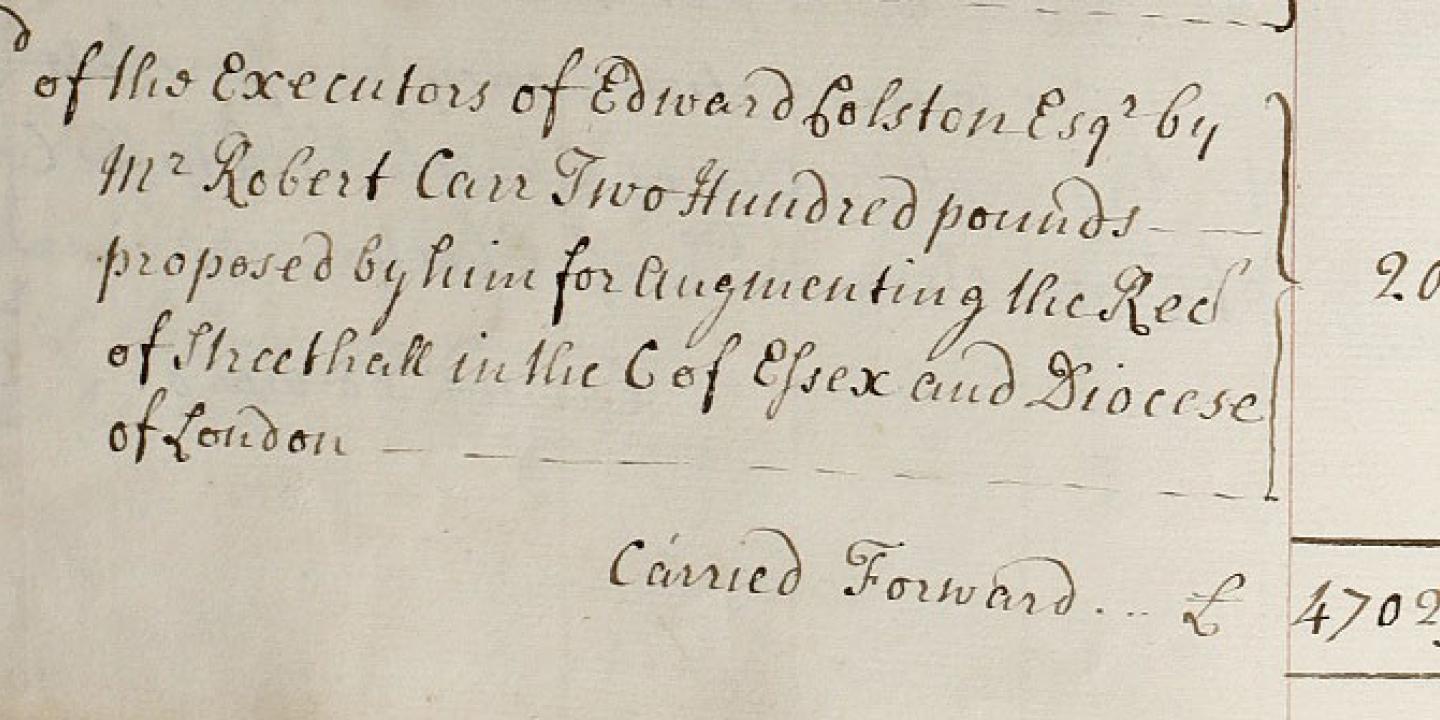 of the Executors of Edward Colston Esqr by
Mr Robert Carr Two Hundred pounds
proposed by him for Augmenting the Rec
of Streethall in the C of Essex and Diocese
of London
20
Carried Forward... £ 4702